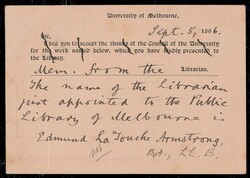 University of Melbourne,
Sept. 5, 1896.
Sir,
I beg you to accept the thanks of the Council of the University
for the work named below, which you have kindly presented to
the Library.
Mem. from the
Librarian.
The name of the Librarian
just appointed to the Public
Library of Melbourne is
Edmund La Touche Armstrong,
Esq., LL. B.